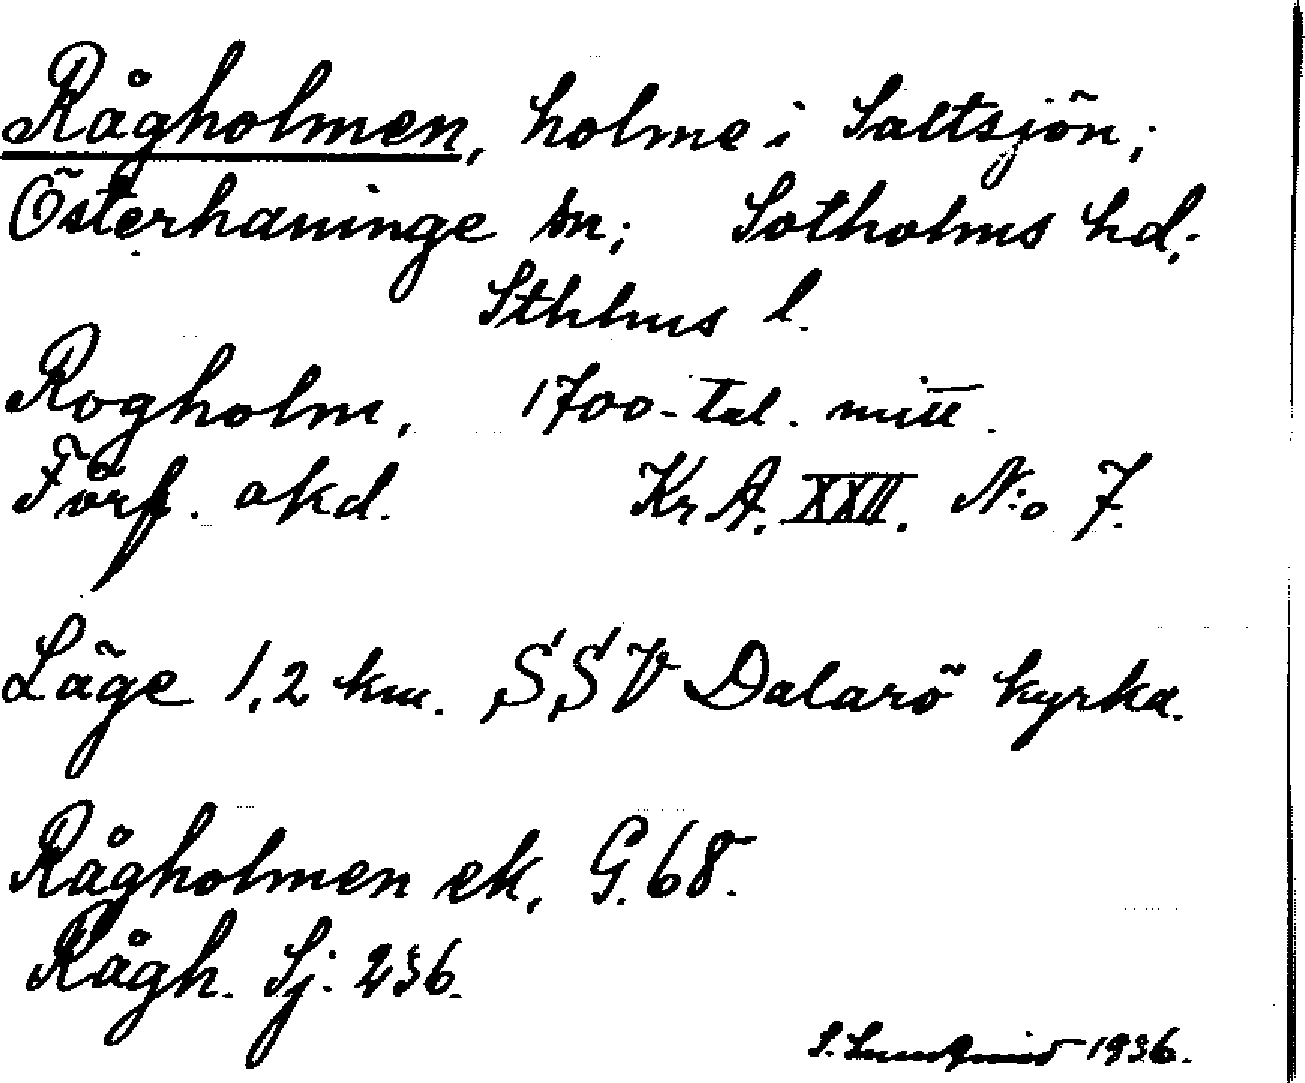 Rågholmen, holme i Saltsjön;
Österhaninge sn; Sotholms hd;
Sthlms l.
Rogholm, 1700-tal. mitt.
Förf. okd. Kr A. XXII. N:o 7.
Läge 1,2 km. SSV Dalarö kyrka.
Rågholmen ek, G. 68.
Rågh. Sj: 236.
S. 1936.